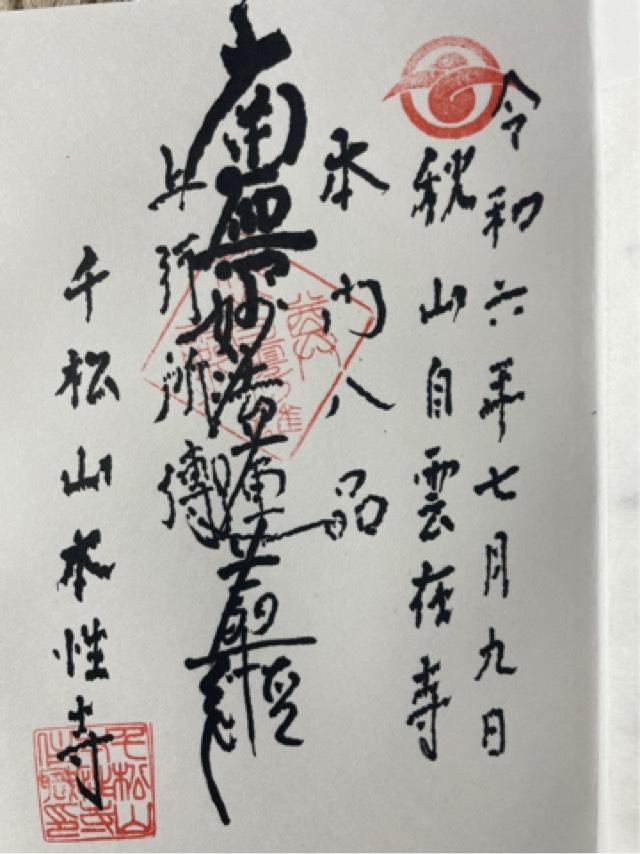 令和六年七月九日
秋山自雲在寺
本門八品
南無妙法蓮華經
上行所傳
千松山本性寺
千松山
本性寺